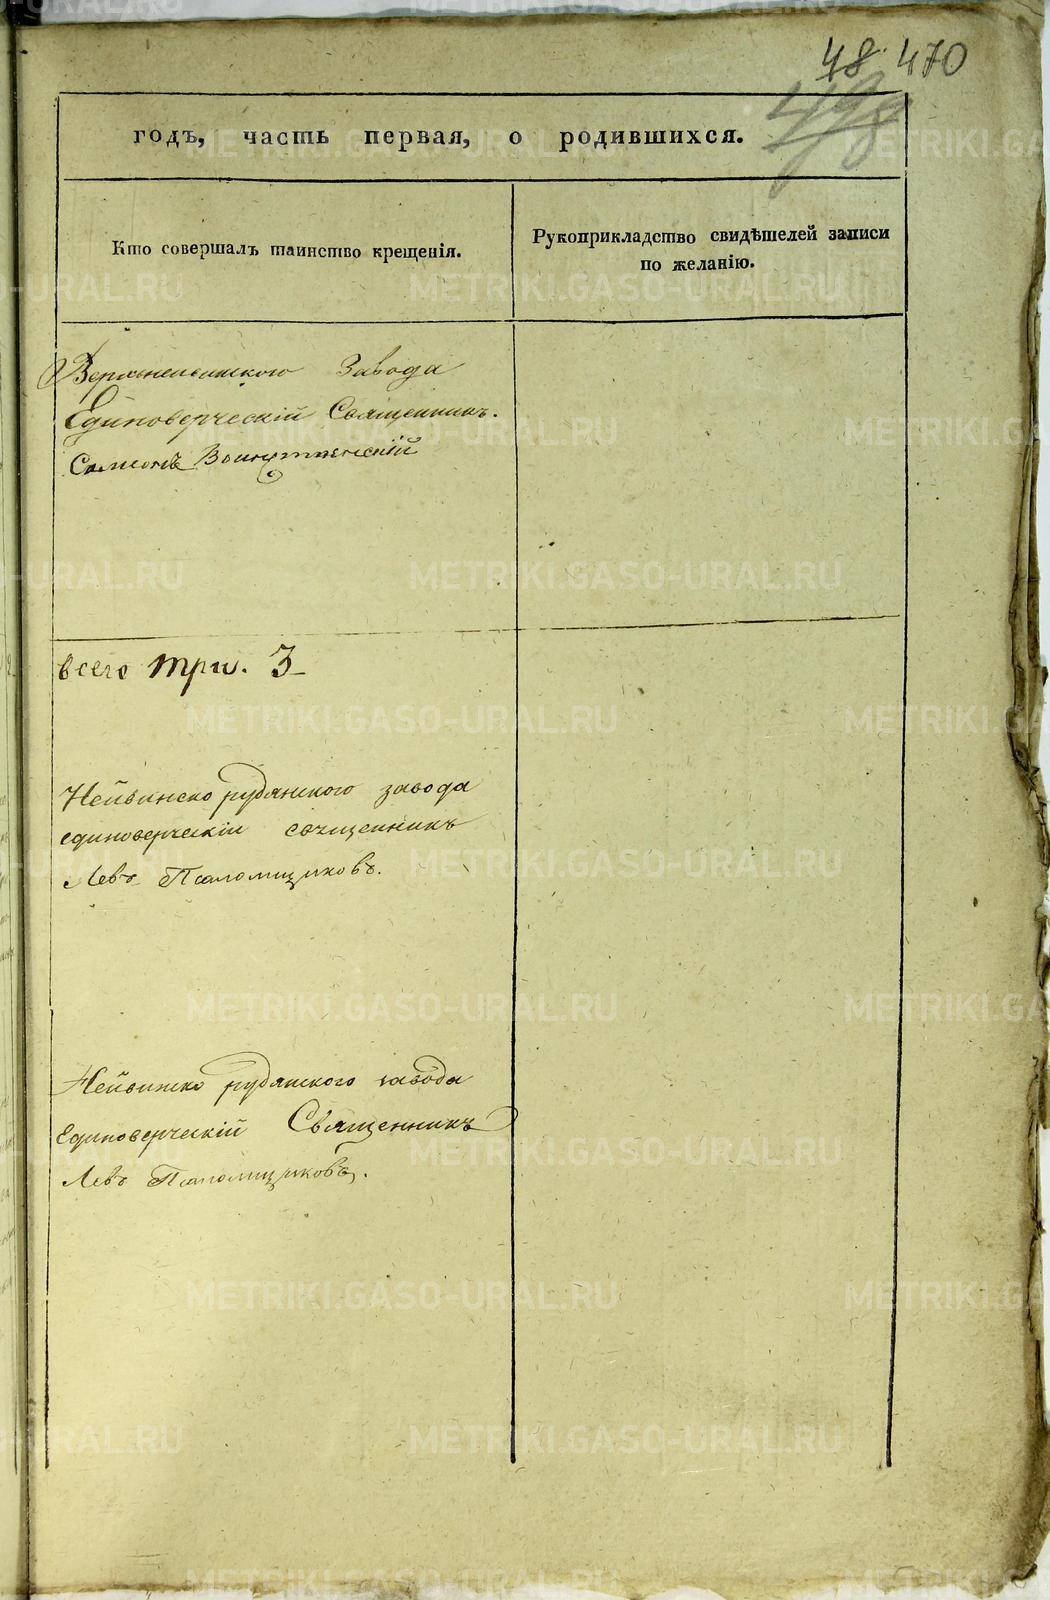 48. 470
498
годъ, часть первая, о родившихся.
Кто совершалъ таинство крещенія.
Рукоприкладство свидѣтелей записи
по желанію.
Верхнейвинского Завода
Единоверческій Священникъ.
всего три. 3
Нейвинско рудянского завода
единоверческіи священникъ
Левъ Паломщиковъ.
Нейвинско рудянского завода
Единоверческій Священникъ
Левъ Паломщиковъ.
METRIKI.GASO-URAL.RU